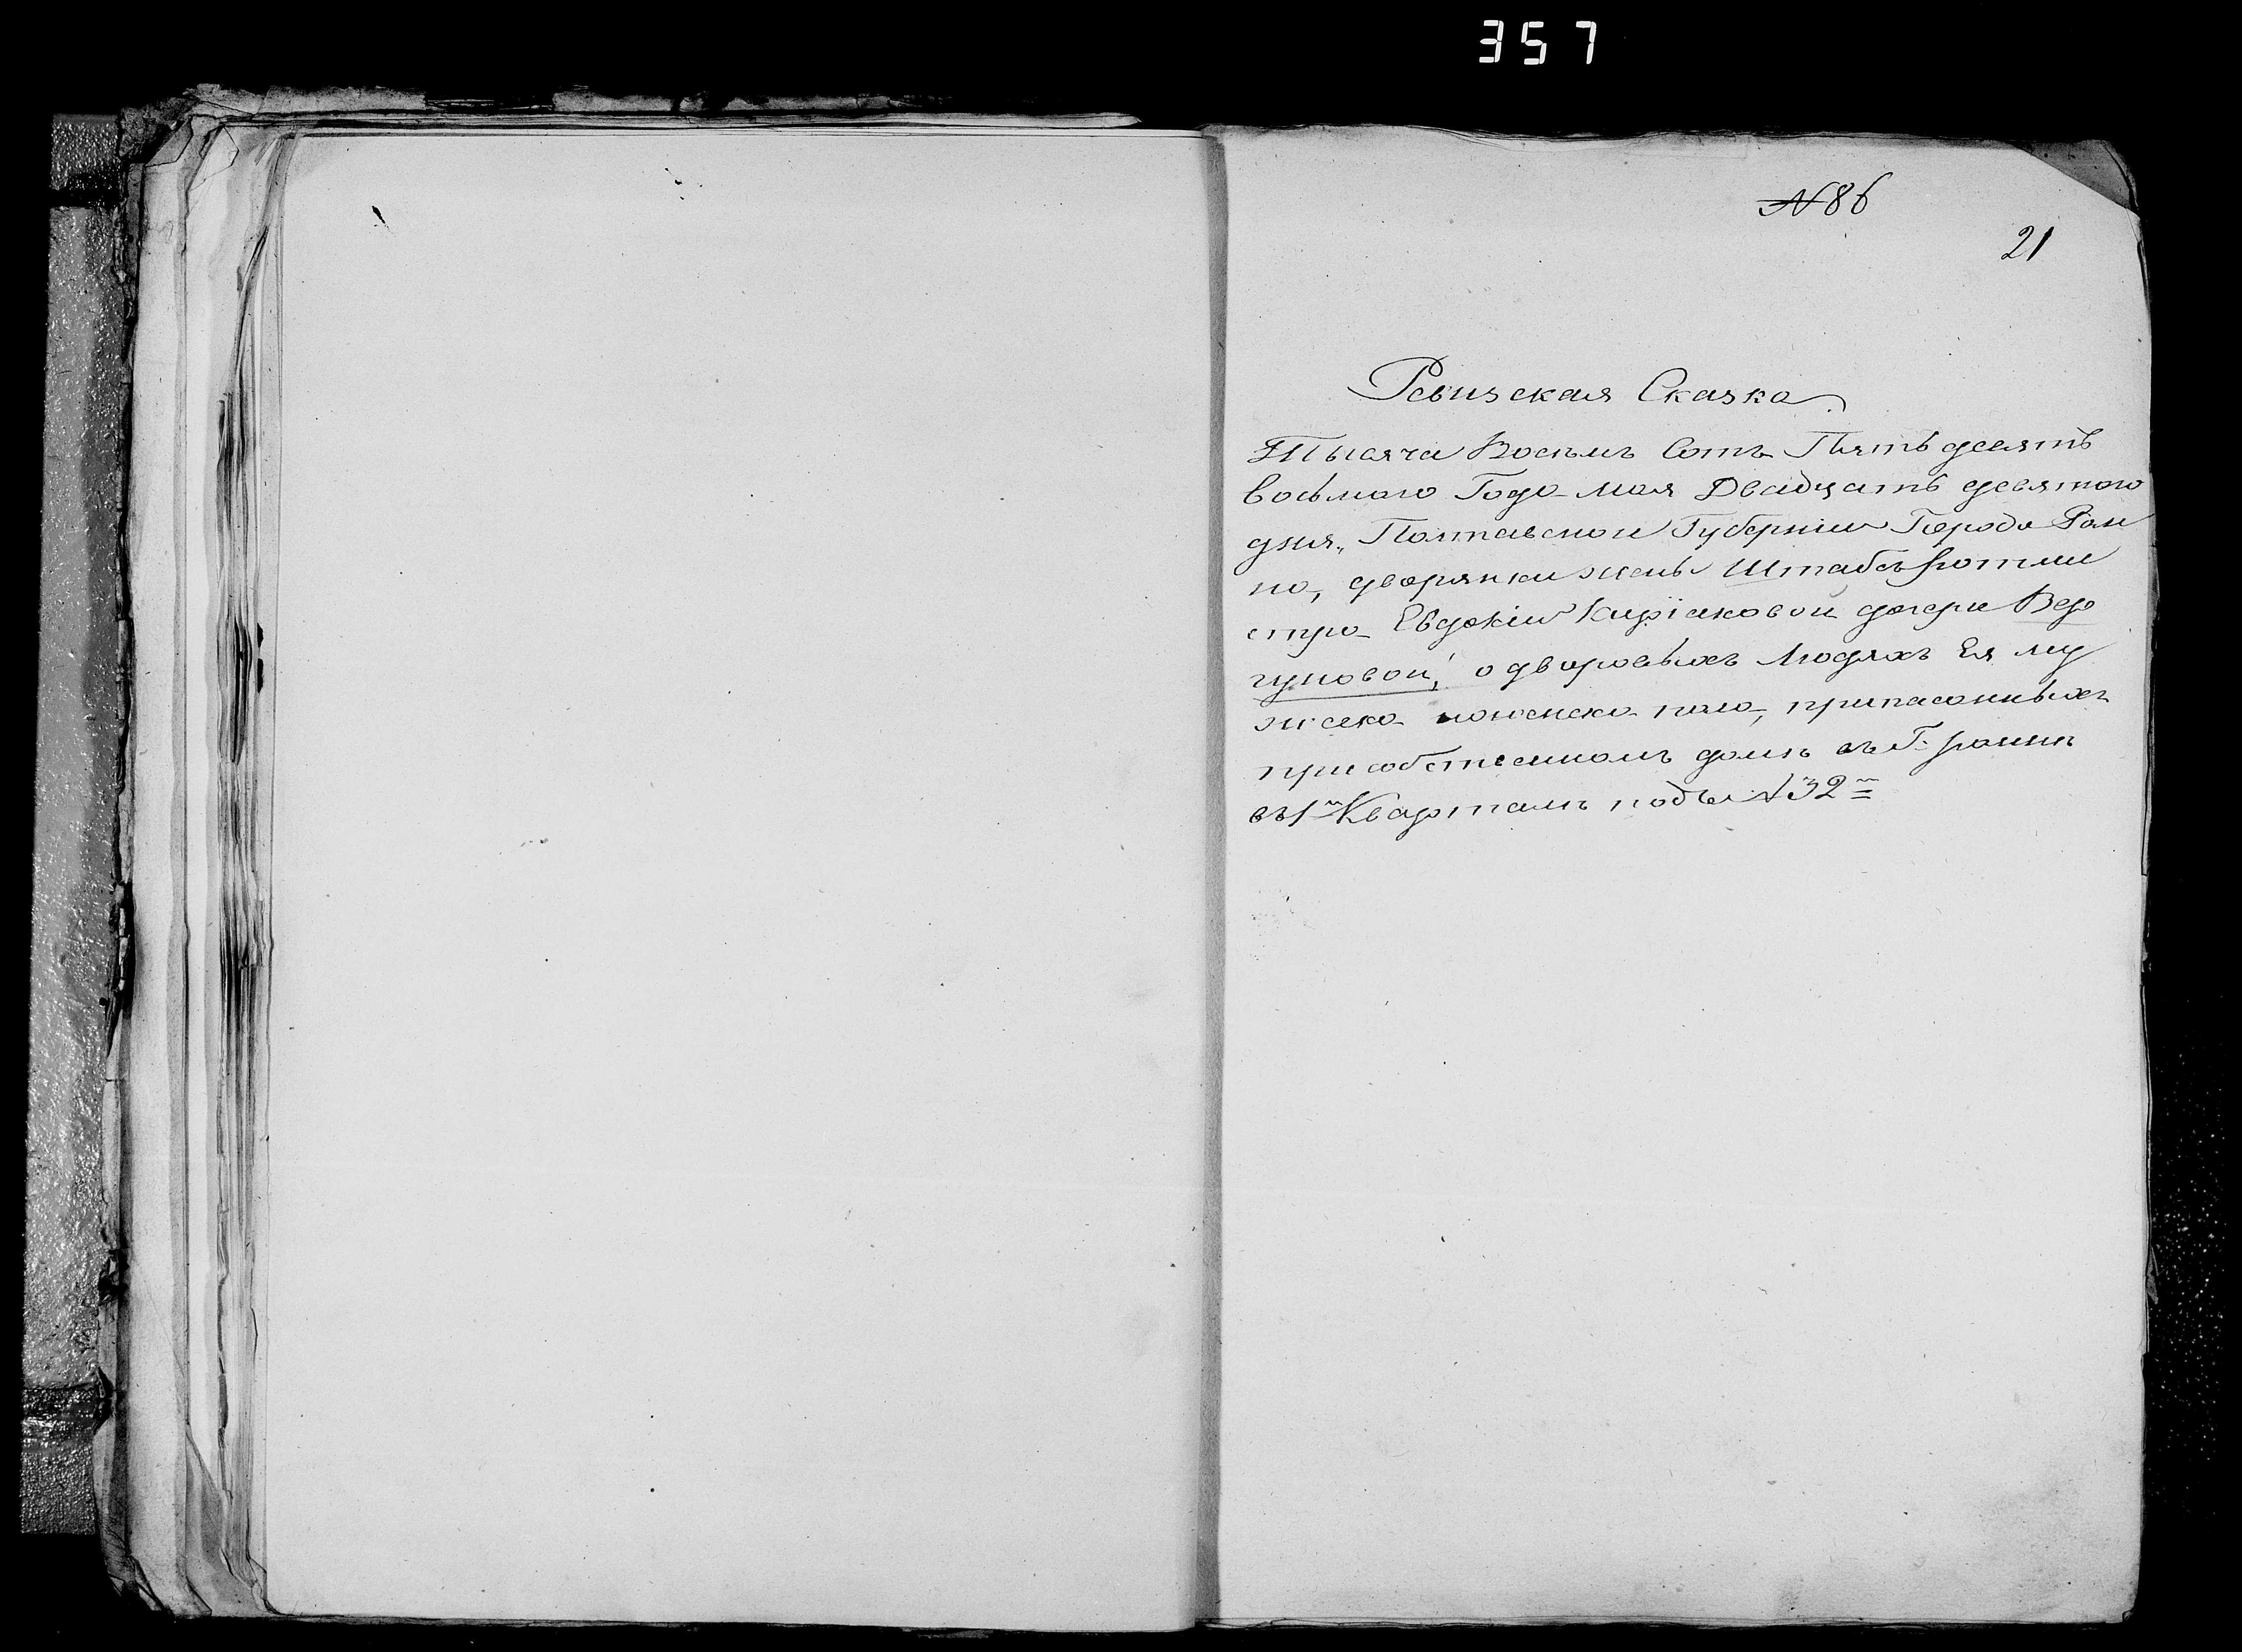 357
№ 86
21
Ревизская Сказка
Тысяча Восемъ Сотъ Пятьдесятъ
восьмого Года мая Двадцать девятого
дня, Полтавской Губернии Города Ром
на, дворянки жены Штабсъ ротми
стра Евдокіи Киріяковой дочери Вер
гуновой, о дворовыхъ людяхъ Ея му
жеска и женска пола, приписанныхъ
при собственномъ доме въ Г. Ромне
въ 1м Квартале подъ № 32м